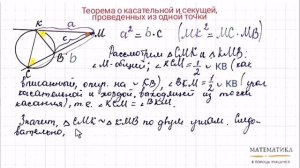 Теорема о касательной и секущей,
проведенных из одной точки
K
a
M
a² = b·c (MK² = MC·MB)
c
B
b
C
Рассмотрим △CMK и △KMB:
∠M-общий; ∠KCM = 1/2 ∪ KB (как
вписанный, опир. на ∪ KB), ∠BKM = 1/2 ∪ KB (угол
касательной и хордой, выходящей из точки
касания), т.е. ∠KCM = ∠BKM.
Значит, △CMK ∾ △KMB по двум углам. Следо-
вательно,
МАТЕМАТИКА